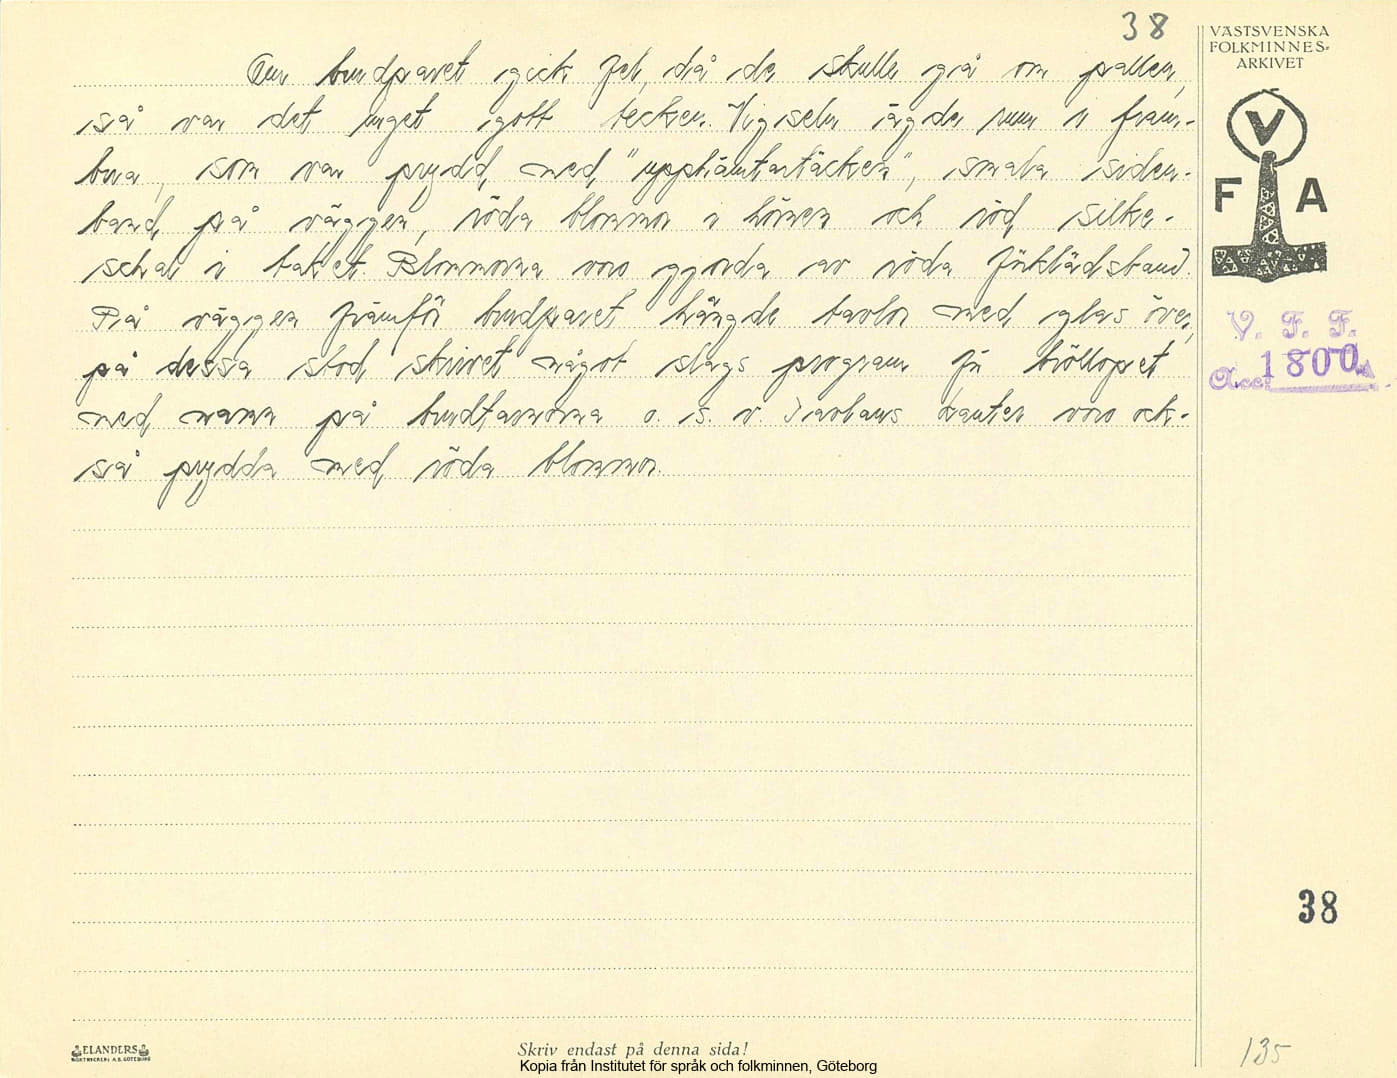 38
VÄSTSVENSKA
FOLKMINNES-
ARKIVET
V
F A
Om brudparet gick fel, då de skulle gå om pallen,
så var det inget gott tecken. Vigseln ägde rum i fram-
bua, som var prydd med "upphämtartäcken", smala siden-
band på väggen, röda blommor i hörnen och röd silke-
schal i taket. Blommorna voro gjorda av röda förklädsband.
På väggen framför brudparet hängde tavlor med glas över,
på dessa stod skrivet något slags program för bröllopet
med namn på brudtärnorna o. s. v. Tavlans kanter voro ock-
så prydda med röda blommor.
V. F. F.
Acc. 1800
38
ELANDERS
BOKTRYCKERI A.B. GÖTEBORG
Skriv endast på denna sida!
Kopia från Institutet för språk och folkminnen, Göteborg
135